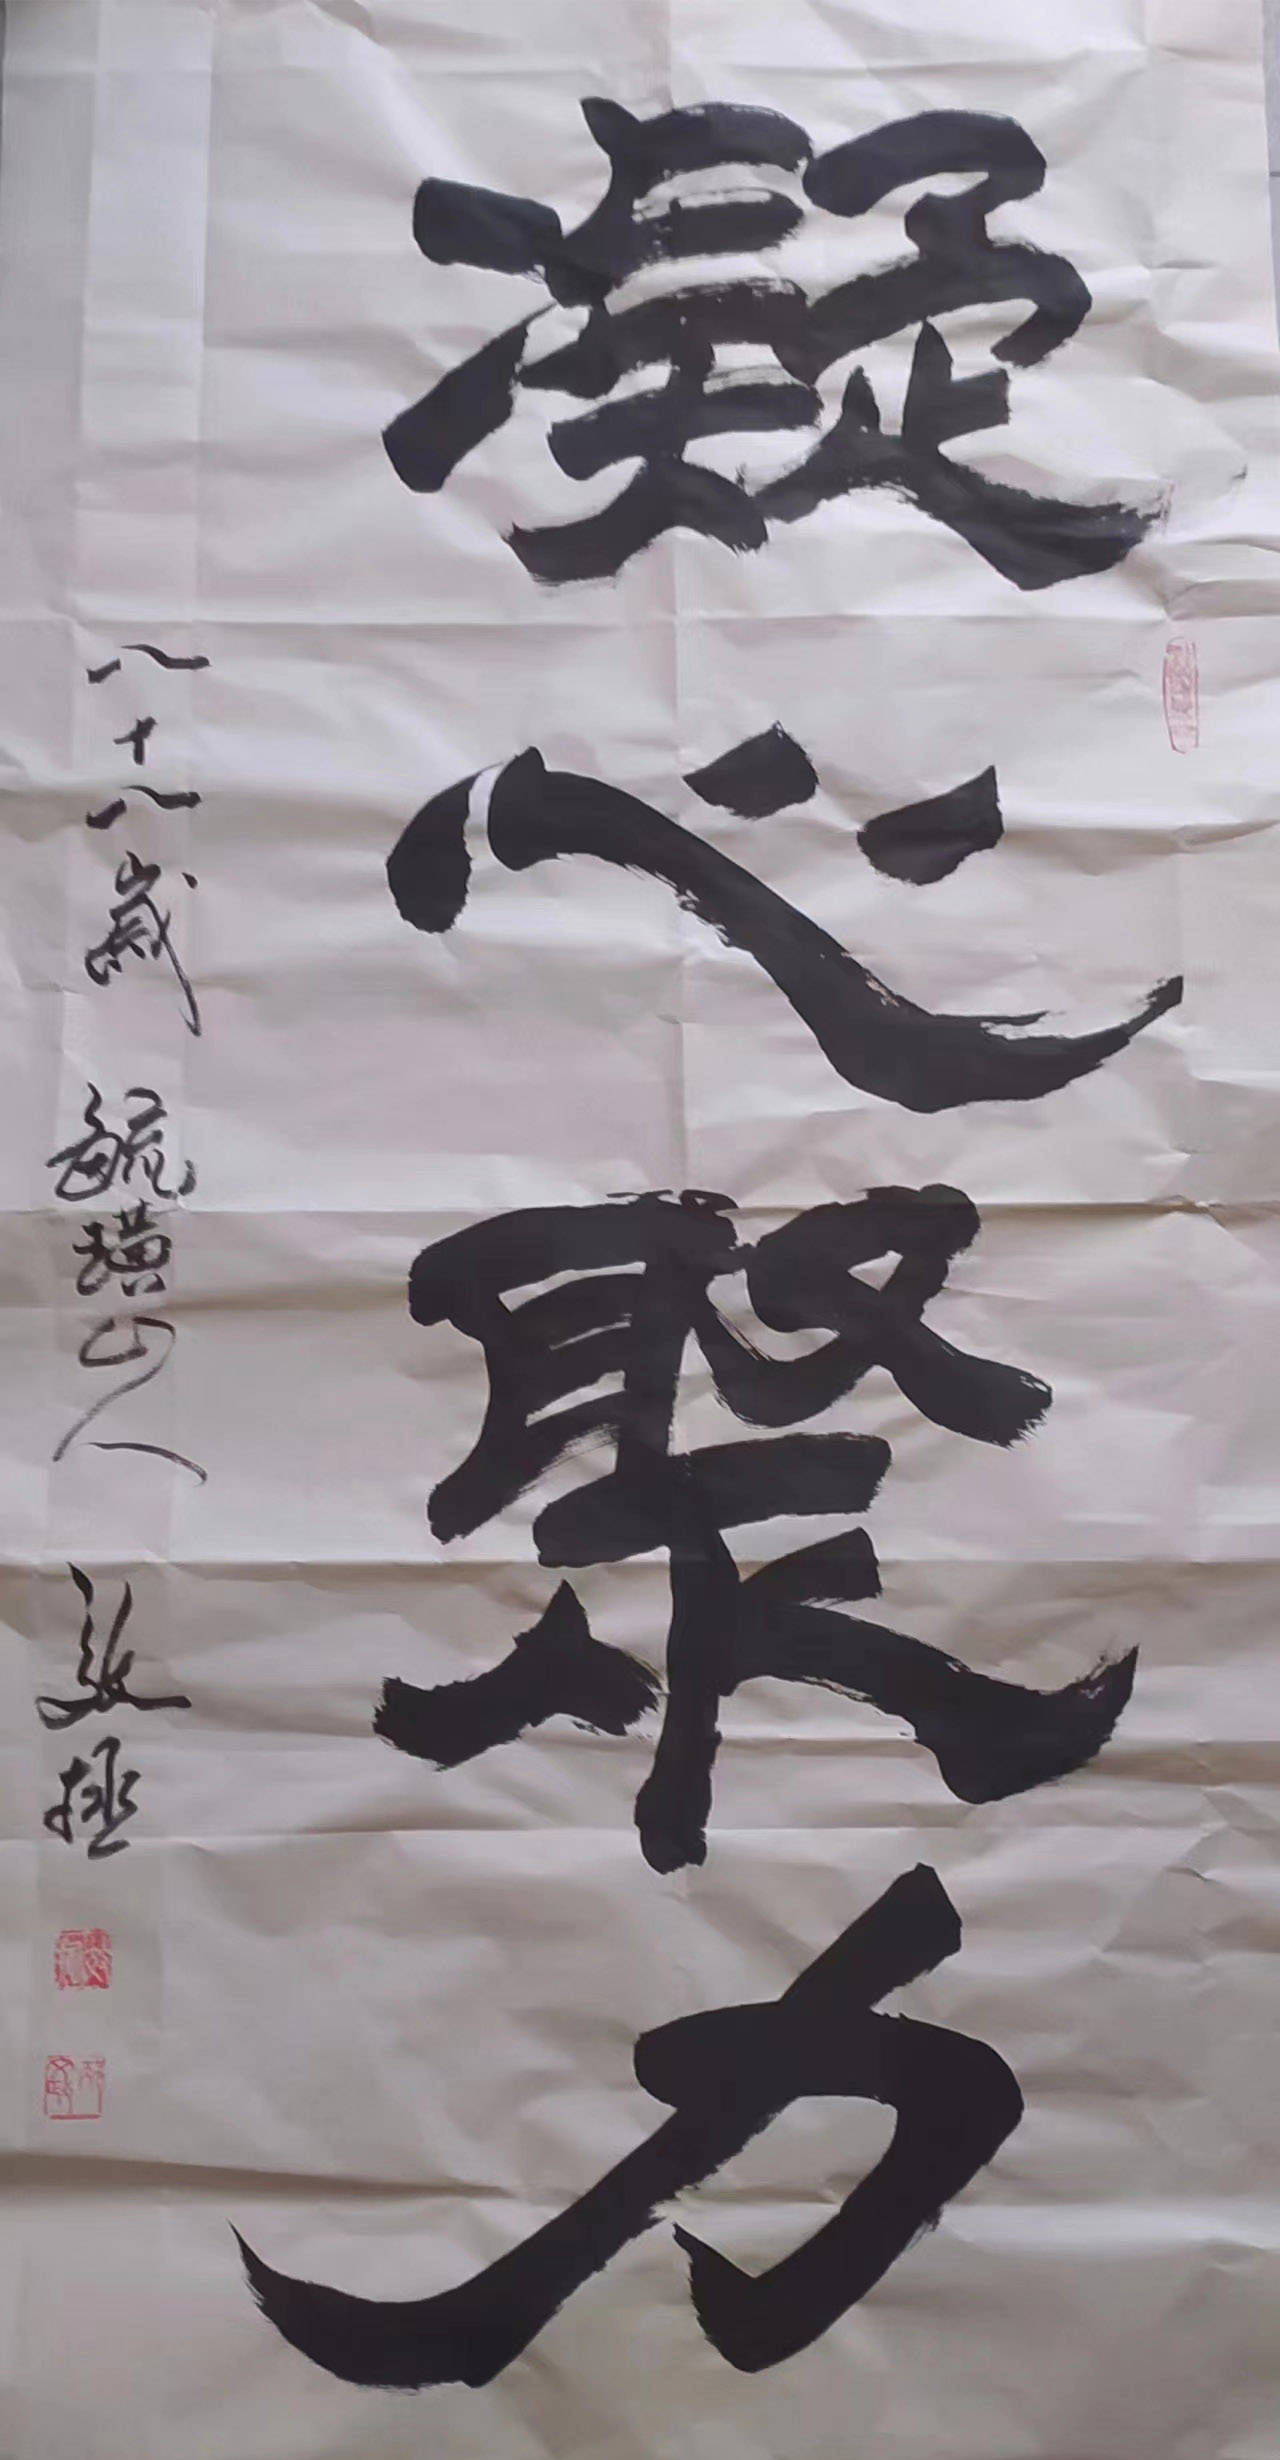 凝心聚力
八十八歲 毓璜山人 敬極